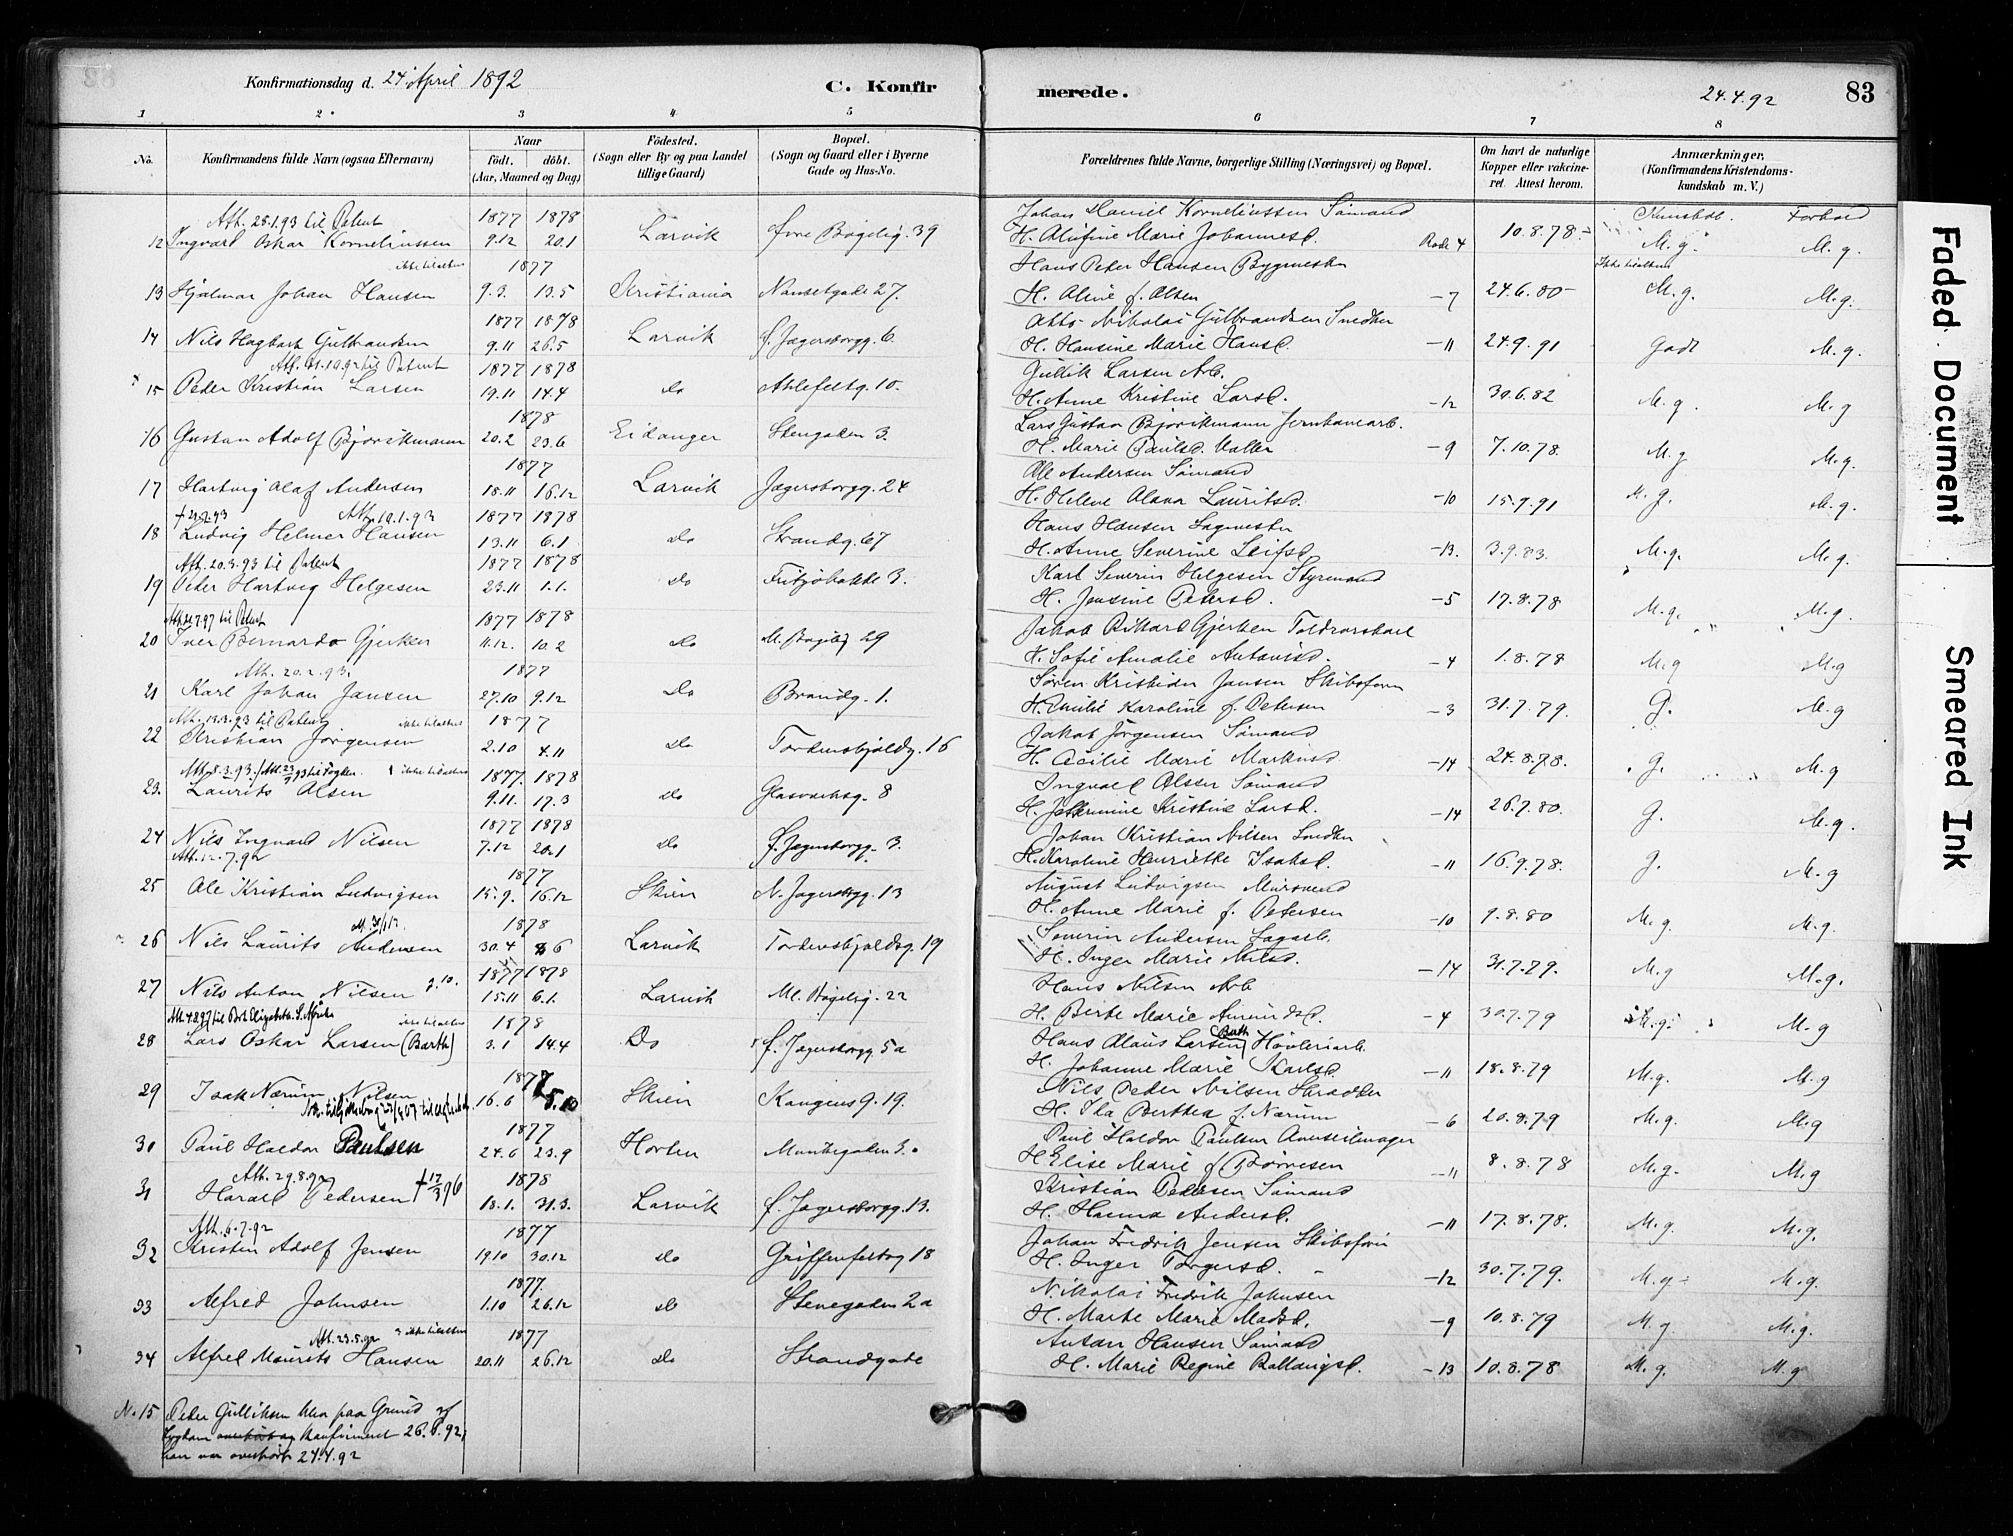 Konfirmationsdag d. 24 April 1892
C. Konfirmerede.
24.4.92
83
1 2 3 4 5 6 7 8
No.
Konfirmandens fulde Navn (ogsaa Efternavn)
Naar
födt. döbt.
(Aar, Maaned og Dag)
Födested.
(Sogn eller By og paa Landet tillige Gaard)
Bopæl.
(Sogn og Gaard eller i Byerne Gade og Hus-No.
Forældrenes fulde Navne, borgerlige Stilling (Næringsvei) og Bopæl.
Om havt de naturlige Kopper eller vakcineret. Attest herom.
Anmærkninger,
(Konfirmandens Kristendomskundskab m. V.)
Kundsk. Forhold
Att. 25.1.93 til Patent 1877 1878 Johan Daniel Korneliussen Sömand
12 Ingvard Oskar Korneliussen 9.12 20.1 Larvik 39 H. Marie Johannesd. Rode 4 10.8.78 M.g. M.g.
1877 Hans Peter Hansen Bygmester
13 Hjalmar Johan Hansen 9.3. 13.5 Kristiania Nansetgade 27. H. Aline f. Olsen -7 24.6.80 M.g. M.g.
1877 1878 Otto Nikolai Gulbrandsen Snedker
14 Nils Hagbart Gulbrandsen 9.11 26.5 Larvik f. Jegersborgg. 6 H. Hansine Marie Hansd. -11 24.9.91 Godt M.g.
til Patent 1877 1878 Gullik Larsen Arb.
15 Peder Kristian Larsen 19.11 14.4 do Ahlefeltg. 10. H. Anne Kristine Larsd. -12 30.6.82 M.g. M.g
1878 Lars Gustav Bjørvikmann
16 Gustav Adolf Bjørvikmann 20.2 23.6 Eidanger Stengaden 3. H. Marie -9 7.10.78 M.g M.g.
1877 Ole Andersen Sömand
17 Hartvig Olaf Andersen 18.11 16.12 Larvik Jegersborgg. 24 H. Helene Olava Lauritsd. -10 15.9.91 M.g. M.g.
Att. 10.1.93 1877 1878 Hans Hansen Sagmester
18 Ludvig Helmer Hansen 13.11 6.1 do Strandg. 67 H. Anne Severine Leifsd. -13. 3.9.83. M.g. M.g.
Att. 20.3.93 til Patent 1877 1878 Karl Severin Helgesen Styrmand
19 Peter Hartvig Helgesen 23.11 1.1. do 3. H. Jensine Petersd. -5 17.8.78 M.g. M.g.
til Patent 1877 1878 Jakob Rikard Gjerken
20 Iver Bernardo Gjerken 11.12. 10.2 do 29 H. Sofie Amalie -4 1.8.78 M.g M.g
Att. 20.2.93. 1877 Sören Kristian Jansen Skibsförer
21 Karl Johan Jansen 27.10 9.12 do Brandg. 1. H. Emilie Karoline f. Petersen -3 31.7.79. G. M.g
Att. 13.3.93 til Patent 1877 Jakob Jörgensen Sömand
22 Kristian Jörgensen 2.10 4.11 do Tordenskjoldg. 16 H. Cecilie Marie Markusd. -14 24.8.78. G. M.g
Att. 8.3.93. 1877. 1878 Ingvald Olsen Sömand
23. Laurits Olsen 9.11. 17.3 do Glasverksg. 8 H. Kristine Larsd. -14 26.7.80. G. M.g.
1877 1878 Johan Kristian Nilsen Snedker
24 Nils Ingvard Nilsen 7.12 20.1 do f. Jegersborgg. 3. H. Karoline Henriette Isaksd. -11 16.9.78. G. M.g
Att. 12.7.92 1877 August Ludvigsen Mursvend
25 Ole Kristian Ludvigsen 15.9. 16.12 Skien N. Jegersborgg. 13 H. Anne Marie f. Petersen -10 9.8.80 M.g. M.g.
1878 Severin Andersen Sagarb.
26 Nils Laurits Andersen 30.4 Larvik Tordenskjoldsg. 19 H. Inger Marie Nilsd. -14 31.7.79. M.g M.g.
1877 1878 Hans Nilsen Arb
27 Nils Anton Nilsen 15.11 6.1. Larvik 22 H. Berte Marie Amundsd. -4 30.7.79 M.g. M.g
til Port Elizabeth. S. Afrika 1878 Hans Olaus Larsen Barth Høvleriarb.
28 Lars Oskar Larsen (Barth) 3.1 14.4 Do f. Jegersborgg 5a H. Johanne Marie Karlsd. -11 18.8.79 M.g. M.g
1877 Nils Peder Nilsen
29 Isak Nærum Nilsen 16.6 Skien Kongens g. 19. H. Ida Berthea f. Nærum -6 20.8.79 M.g. M.g
1877 Paul Haldor Paulsen
30 Paul Haldor Paulsen 24.6 23.9 Horten Munkegaden 3. H. Elise Marie f. -11 8.8.78 M.g. M.g
Att. 29.8.92 1878 Kristian Pedersen Sömand
31 Harald Pedersen † 18.1. 31.3. Larvik f. Jegersborgg. 13. H. Hanna Andersd. -11 17.8.78. M.g. M.g.
Att. 6.7.92 1877 Johan Fredrik Jensen Skibsförer
32 Kristen Adolf Jensen 19.10 30.12 do Griffenfeltsg 18 H. Inger Torgersd. -12 30.7.79. M.g. M.g.
1877. Nikolai Fredrik Johnsen
33 Alfred Johnsen 1.10 26.12 do Stenegaden 2a H. Marte Marie Madsd. -9 10.8.79 M.g. M.g.
Att. 23.5.92 1877 Anton Hansen Sömand
34 Alfred Maurits Hansen 20.11 26.12 do Strandgade H. Marie Regine -13 10.8.78 M.g. M.g
N. 15 Peder Gulliksen blev paa Grund af
Sygdom konfirmeret 26.6.92,
han var overhört 24.4.92
Faded Document
Smeared Ink